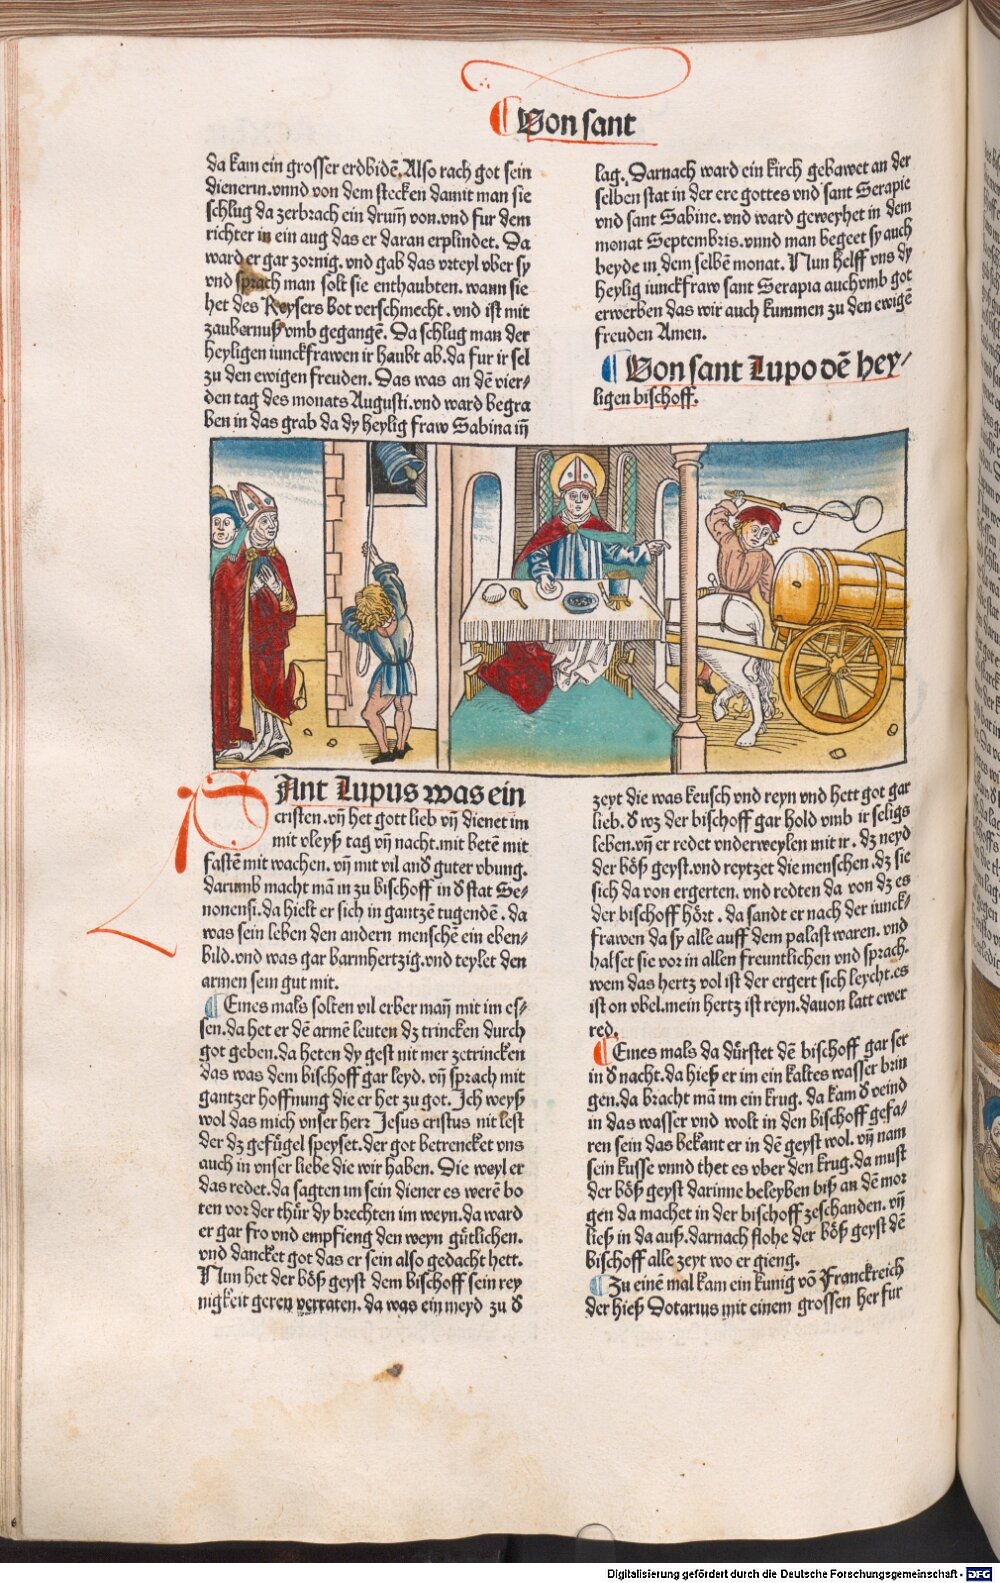 Von sant
da kam ein grosser erdbidē. Also rach got sein
dienerin. vnnd von dem stecken damit man sie
schlug da zerbrach ein drum̄ von. vnd fur dem
richter in ein aug das er daran erplindet. Da
ward er gar zornig. vnd gab das vrteyl vber sy
vnd sprach man solt sie enthaubten. wann sie
het des Keysers bot verschmecht. vnd ist mit
zaubernuß vmb gegangē. Da schlug man der
heyligen iunckfrawen ir haubt ab. da fur ir sel
zu den ewigen freuden. Das was an dē vier-
den tag des monats Augusti. vnd ward begra
ben in das grab da dy heylig fraw Sabina in̄
lag. Darnach ward ein kirch gebawet an der
selben stat in der ere gottes vnd sant Serapie
vnd sant Sabine. vnd ward geweyhet in dem
monat Septembris. vnnd man begeet sy auch
beyde in dem selbē monat. Nun helff vns dy
heylig iunckfraw sant Serapia auch vmb got
erwerben das wir auch kummen zu den ewigē
freuden Amen.
Von sant Lupo dē hey-
ligen bischoff.
SAnt Lupus was ein
cristen. vn̄ het gott lieb vn̄ dienet im
mit vleyß tag vn̄ nacht. mit betē mit
fastē mit wachen. vn̄ mit vil and̄ guter vbung.
darumb macht mā in zu bischoff in d̄ stat Se-
nonensi. da hielt er sich in gantzē tugendē. da
was sein leben den andern menschē ein eben-
bild. vnd was gar barmhertzig. vnd teylet den
armen sein gut mit.
Eines mals solten vil erber man̄ mit im es-
sen. da het er dē armē leuten dz trincken durch
got geben. da heten dy gest nit mer zetrincken
das was dem bischoff gar leyd. vn̄ sprach mit
gantzer hoffnung die er het zu got. Ich weyß
wol das mich vnser herr Jesus cristus nit lest
der dz gefügel speyset. der got betrencket vns
auch in vnser liebe die wir haben. Die weyl er
das redet. da sagten im sein diener es werē bo
ten vor der thür dy brechten im weyn. da ward
er gar fro vnd empfieng den weyn gütlichen.
vnd dancket got das er sein also gedacht hett.
Nun het der böß geyst dem bischoff sein rey
nigkeit geren verraten. da was ein meyd zu d̄
zeyt die was keusch vnd reyn vnd hett got gar
lieb. d̄ wz der bischoff gar hold vmb ir seligs
leben. vn̄ er redt vnderweylen mit ir. dz neyd
der böß geyst. vnd reytzet die menschen. dz sie
sich da von ergerten. vnd redten da von dz es
der bischoff hört. da sandt er nach der iunck-
frawen da sy alle auff dem palast waren. vnd
halset sie vor in allen freuntlichen vnd sprach.
wem das hertz vol ist der ergert sich leycht. es
ist on vbel. mein hertz ist reyn. dauon latt ewer
red.
Eines mals da dürstet dē bischoff gar ser
in d̄ nacht. da hieß er im ein kaltes wasser brin
gen. da bracht mā im ein krug. da kam d̄ veind
in das wasser vnd wolt in den bischoff gefa-
ren sein das bekant er in dē geyst wol. vn̄ nam
sein kusse vnnd thet es vber den krug. da must
der böß geyst darinne beleyben biß an dē mor
gen da machet in der bischoff zeschanden. vn̄
ließ in da auß. darnach flohe der böß geyst dē
bischoff alle zeyt wo er gieng.
Zu einē mal kam ein kunig vō Franckreich
der hieß Dotarius mit einem grossen her fur
Digitalisierung gefördert durch die Deutsche Forschungsgemeinschaft - DFG